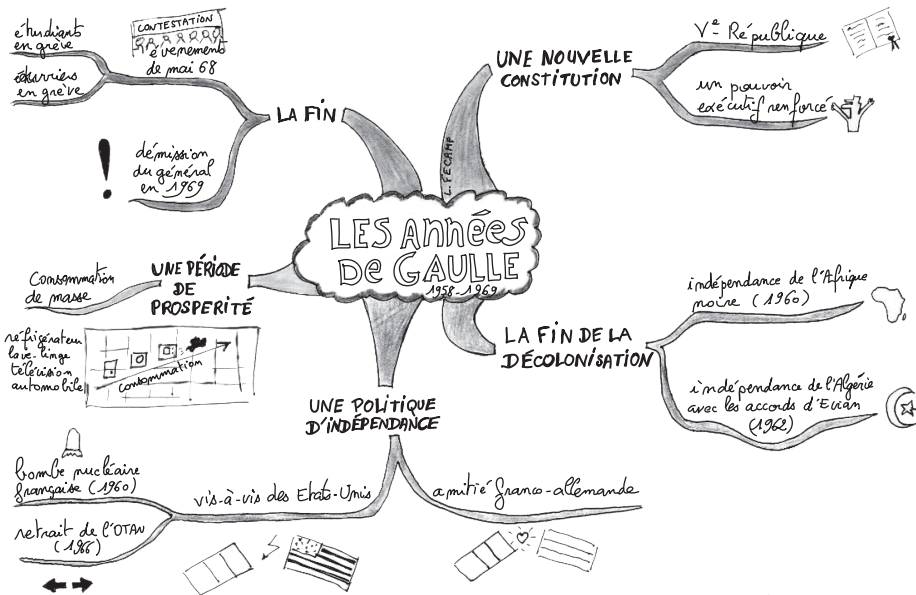 LES Années
DE GAULLE
1958-1969
L. FECAMP
UNE NOUVELLE
CONSTITUTION
Ve République
un pouvoir
exécutif renforcé
LA FIN DE LA
DÉCOLONISATION
indépendance de l'Afrique
noire (1960)
indépendance de l'Algérie
avec les accords d'Evian
(1962)
UNE POLITIQUE
D'INDÉPENDANCE
amitié franco-allemande
vis-à-vis des Etats-Unis
bombe nucléaire
française (1960)
retrait de l'OTAN
(1966)
UNE PÉRIODE
DE
PROSPERITÉ
Consommation
de masse
réfrigérateur
lave-linge
télévision
automobile
consommation
LA FIN
CONTESTATION
évènements
de mai 68
étudiants
en grève
ouvriers
en grève
!
démission
du général
en 1969